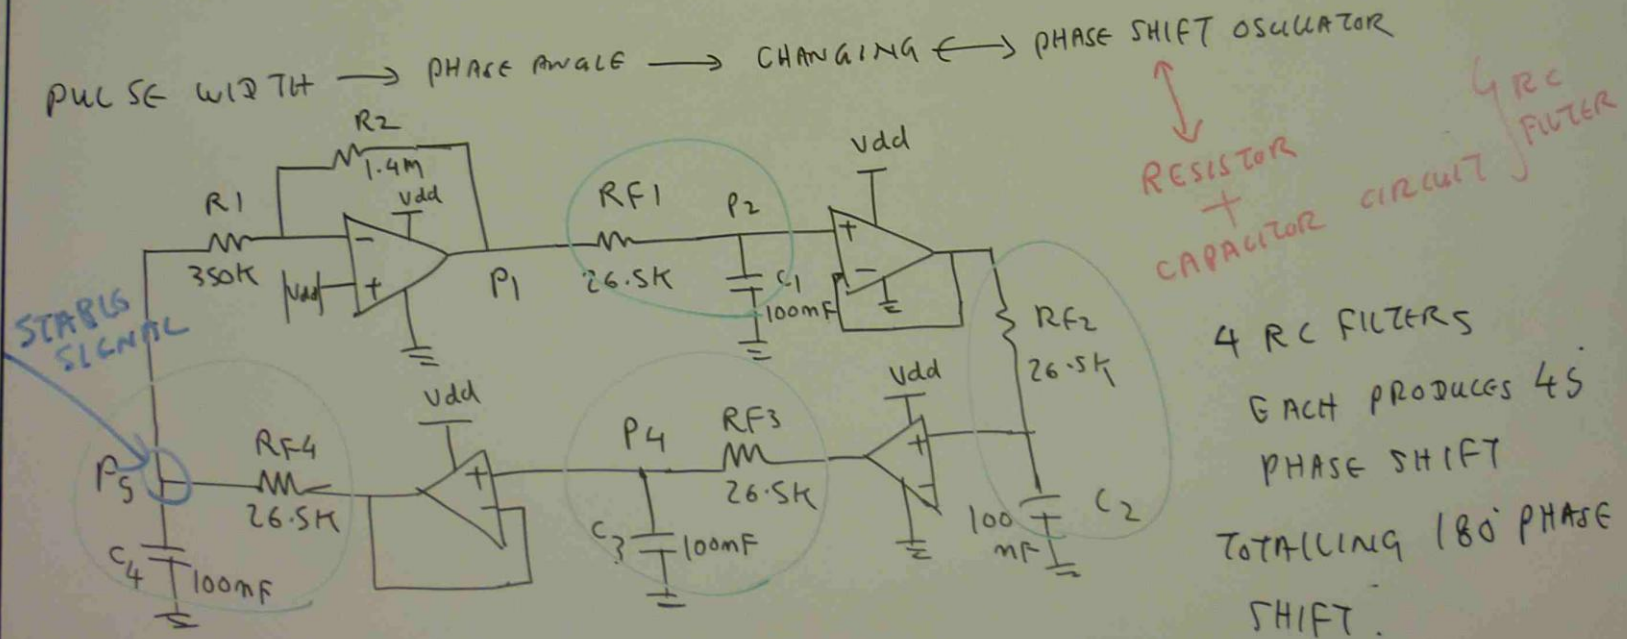 PULSE WIDTH → PHASE ANGLE → CHANGING ↔ PHASE SHIFT OSCILLATOR
RESISTOR
+
CAPACITOR CIRCUIT
4 RC
FILTER
R2
1.4M
Vdd
R1
350K
Vdd
-
+
P1
RF1
26.5K
P2
C1
100mF
Vdd
+
-
RF2
26.5K
C2
100
mF
Vdd
+
-
RF3
26.5K
P4
C3
100mF
Vdd
+
-
RF4
26.5K
P5
C4
100mF
STABLE
SIGNAL
4 RC FILTERS
EACH PRODUCES 45°
PHASE SHIFT
TOTALLING 180° PHASE
SHIFT.